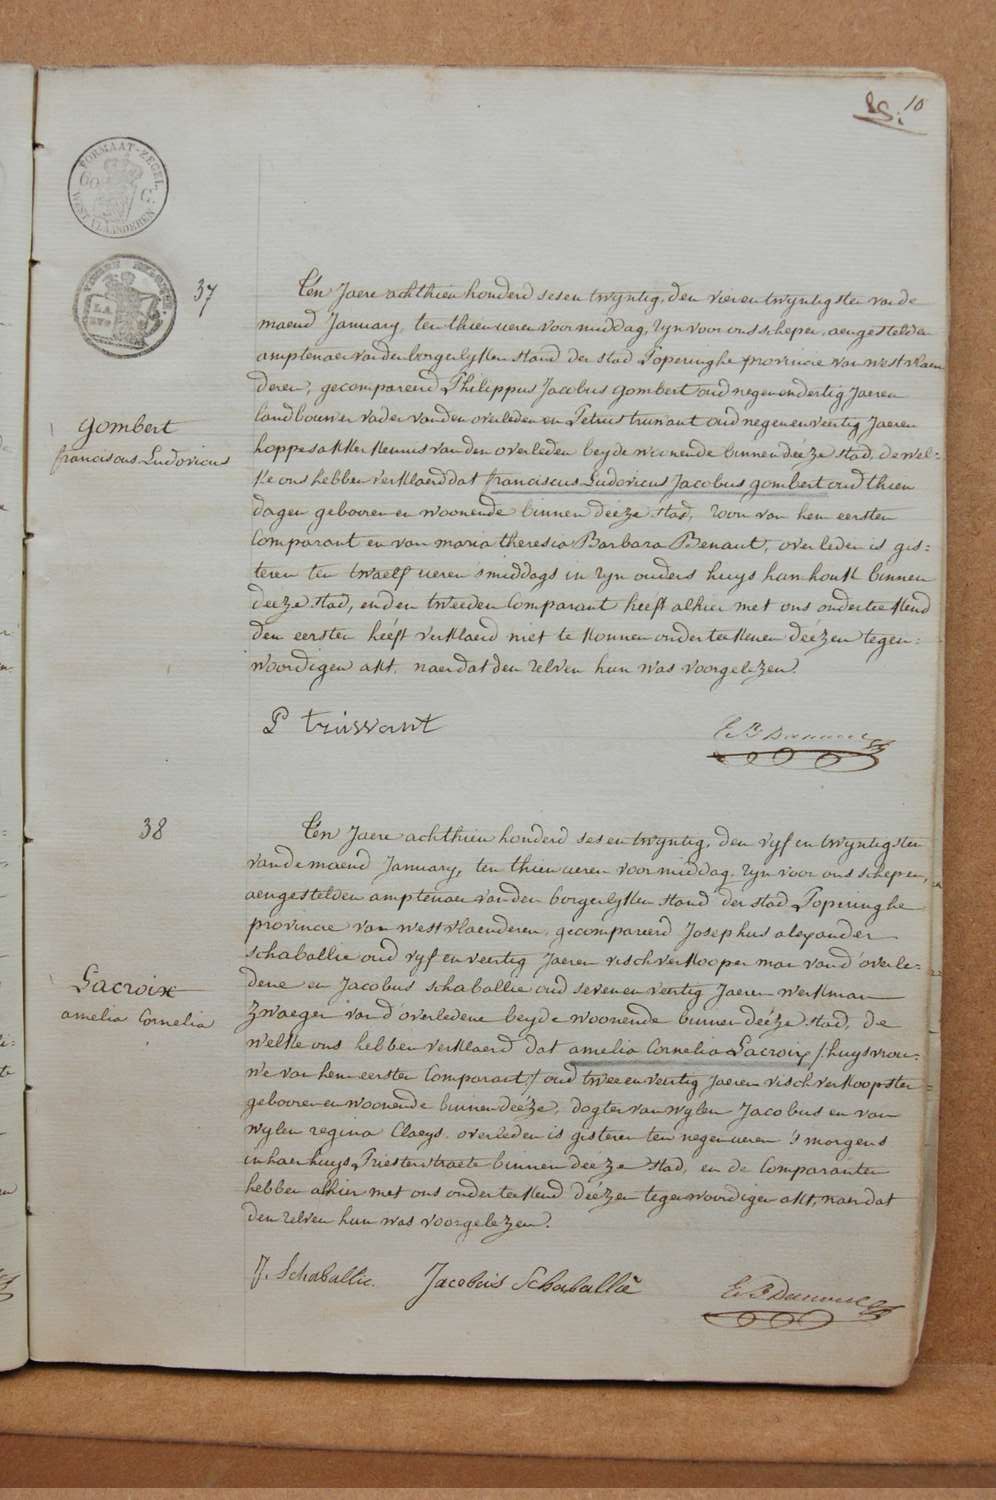 10
FORMAAT-ZEGEL
WEST VLAANDEREN
37
T'en Jaere achthien honderd sesen twÿntig, den vier en twÿntigsten van de
maend January, ten thien ueren voormiddag, zyn voor ons schepen, aengestelden
amptenaer van den borgerlyken stand der stad Poperinghe provincie van westvlaen
deren; gecompareerd Philippus Jacobus gombert oud negen en dertig Jaeren
landbouwer vader van den overleden en Petrus truwant oud negen en veertig Jaeren
gombert
franciscus Ludovicus
hoppesakker kennis van den overleden beyde woonende binnen déeze stad, de wel=
ke ons hebben verklaerd dat franciscus Ludovicus Jacobus gombert oud thien
dagen gebooren en woonende binnen déeze stad, zoon van hem eersten
Comparant en van maria theresia Barbara Benaut, overleden is gis=
teren ten twaelf ueren 's middags in zyn ouders huys hamhouk binnen
deeze stad, en den tweeden Comparant heeft alhier met ons onderteekend
den eersten heéft verklaerd niet te konnen onderteekenen déezen tegen=
woordigen akt, naer dat den zelven hun was voorgelezen.
P truwant
38
T'en Jaere achthien honderd ses en twyntig, den vyf en twyntigsten
van de maend January, ten thien ueren voormiddag, zyn voor ons schepen,
aengestelden amptenaer van den borgerlyken stand der stad Poperinghe
provincie van westvlaenderen, gecompareerd Josephus alexander
schaballie oud vyf en veertig Jaeren vischverkooper man van d'overle=
dene en Jacobus schaballie oud seven en veertig Jaeren werkman
Lacroix
amelia Cornelia
zwaeger van d'overledene beyde woonende binnen deéze stad, de
welke ons hebben verklaerd dat amelia Cornelia Lacroix /huysvrou=
we van hem eersten Comparant/ oud twee en veertig Jaeren vischverkoopster
gebooren en woonende binnen deéze, dogter van wylen Jacobus en van
wylen regina Claeys, overleden is gisteren ten negen ueren 's morgens
in haer huys Priesterstraete binnen deéze stad, en de Comparanten
hebben alhier met ons onderteekend déezen tegenwoordigen akt, naer dat
den zelven hun was voorgelezen.
J. Schaballie. Jacobus Schaballie